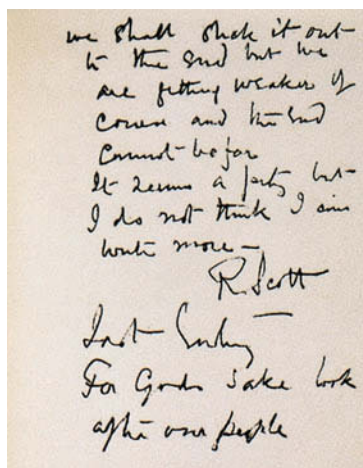 we shall stick it out
to the end but we
are getting weaker of
course and the end
cannot be far
It seems a pity but
I do not think I can
write more –
R. Scott
Last Entry
For Gods sake look
after our people